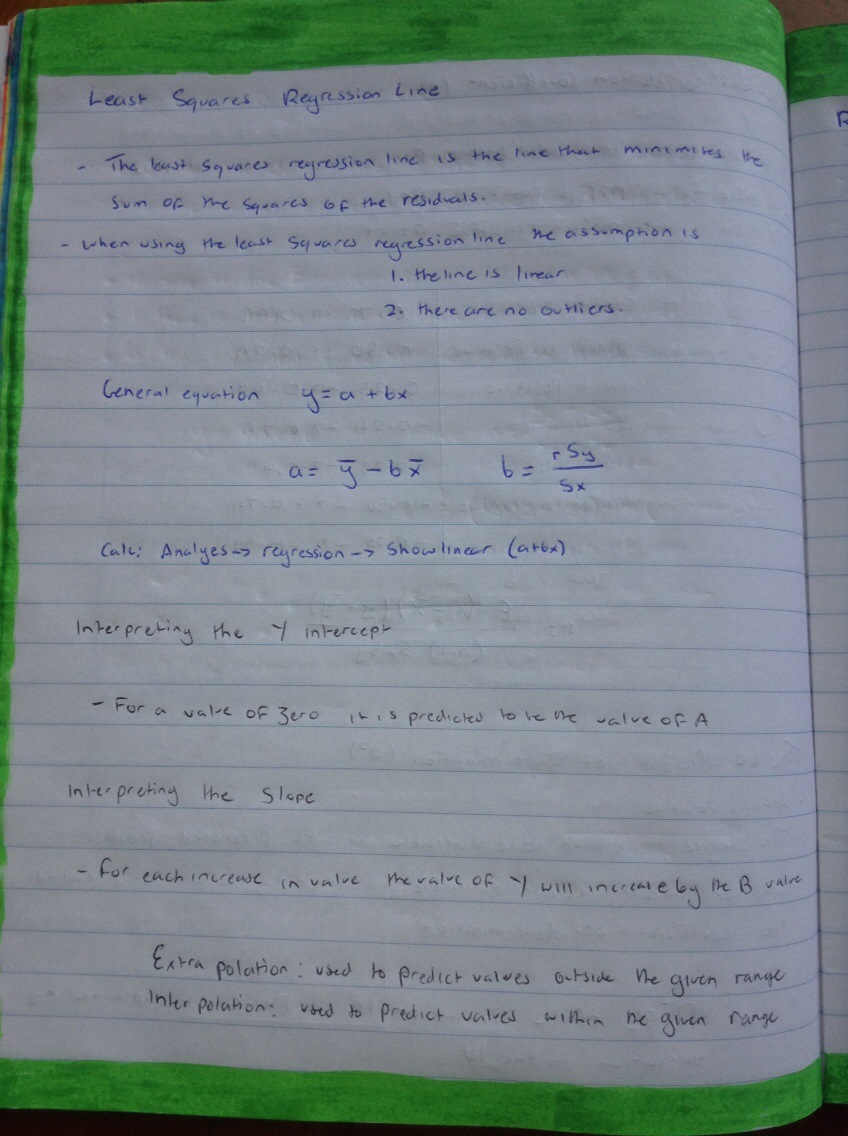 Least Squares Regression Line
- The least squares regression line is the line that minimises the
sum of the squares of the residuals.
- when using the least squares regression line the assumption is
1. the line is linear
2. there are no outliers.
General equation y = a + bx
a = ȳ - b x̄ b = rSy / Sx
Calc: Analyes -> regression -> Show linear (a+bx)
Interpreting the Y intercept
- For a value of zero it is predicted to be the value of A
Interpreting the Slope
- For each increase in value the value of Y will increase by the B value
Extrapolation: used to predict values outside the given range
Interpolation: used to predict values within the given range